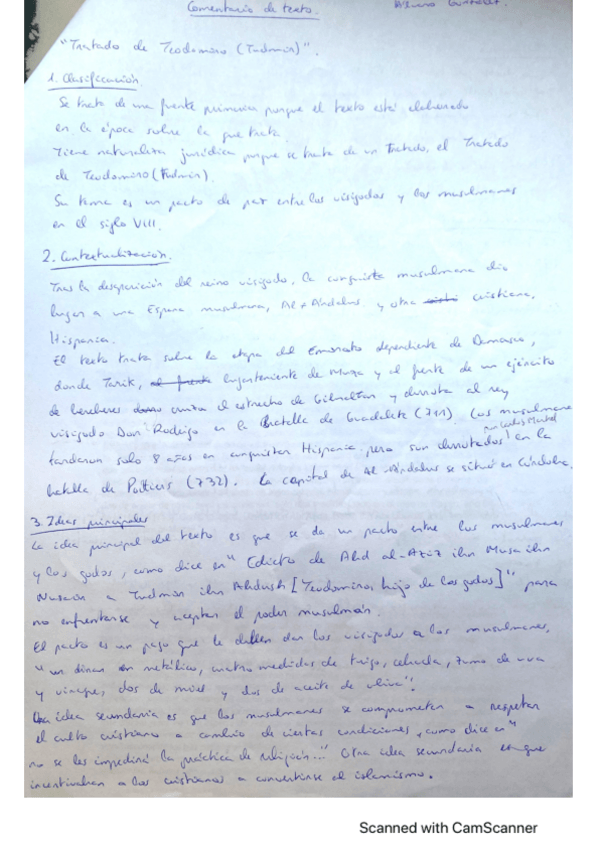 Comentario de texto.
"Tratado de Teodomiro (Tudmin)".
1. Clasificación.
Se trata de una fuente primaria porque el texto está elaborado
en la época sobre la que trata.
Tiene naturaleza jurídica porque se trata de un Tratado, el Tratado
de Teodomiro (Tudmin).
Su tema es un pacto de paz entre los visigodos y los musulmanes
en el siglo VIII.
2. Contextualización.
Tras la desaparición del reino visigodo, la conquista musulmana dio
lugar a una España musulmana, Al-Andalus, y otra cristiana,
Hispania.
El texto trata sobre la etapa del Emirato dependiente de Damasco,
donde Tarik, lugarteniente de Muza y al frente de un ejército
de bereberes cruza el estrecho de Gibraltar y derrota al rey
visigodo Don Rodrigo en la Batalla de Guadalete (711). Los musulmanes
tardaron solo 8 años en conquistar Hispania pero son derrotados por Carlos Martel en la
batalla de Poitiers (732). La capital de Al-Andalus se situó en Córdoba.
3. Ideas principales
La idea principal del texto es que se da un pacto entre los musulmanes
y los godos, como dice en "Edicto de Abd al-Aziz ibn Musa ibn
Nusair a Tudmin ibn Abdush [Teodomiro, hijo de los godos]" para
no enfrentarse y aceptar el poder musulmán.
El pacto es un pago que le deben dar los visigodos a los musulmanes,
"un dinar en metálico, cuatro medidas de trigo, cebada, zumo de uva
y vinagre, dos de miel y dos de aceite de oliva".
Una idea secundaria es que los musulmanes se comprometen a respetar
el culto cristiano a cambio de ciertas condiciones, como dice en "
no se les impedirá la práctica de religión..." Otra idea secundaria es que
incentivaban a los cristianos a convertirse al islamismo.
Scanned with CamScanner